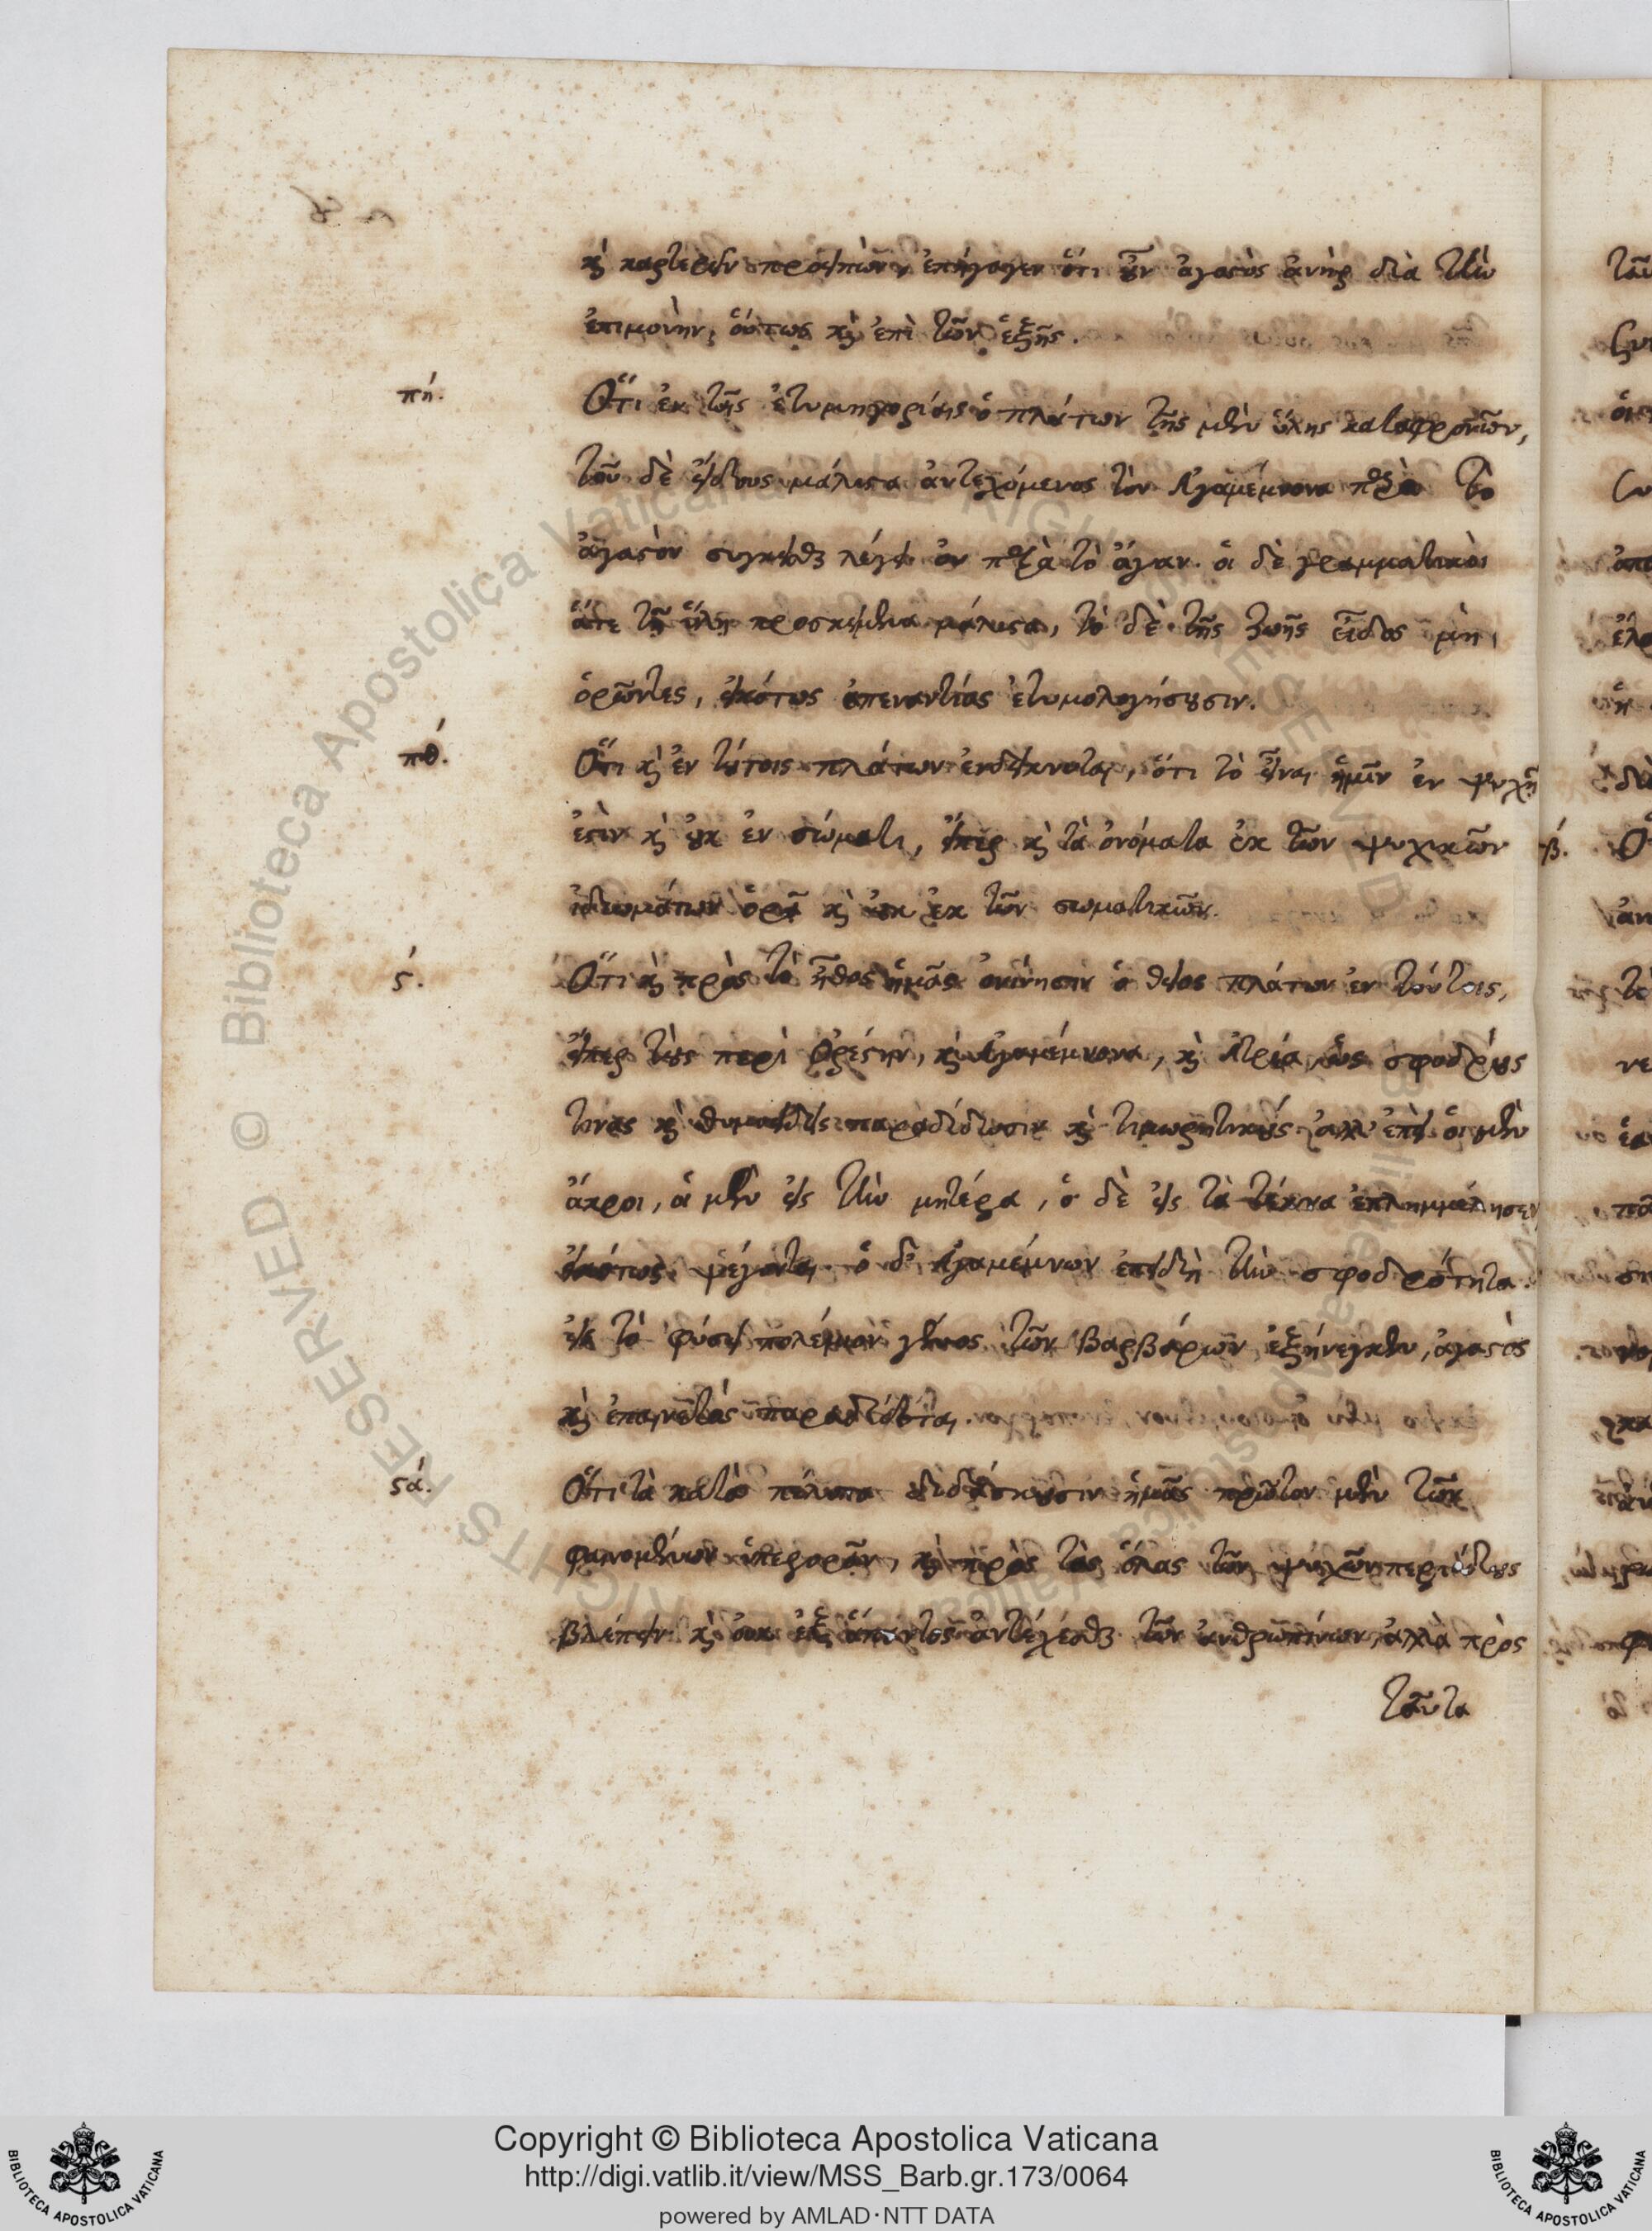 καὶ καρτερεῖν προειπὼν ἐπήγαγεν ὅτι οὖν ἀγαστὸς ἀνὴρ διὰ τὴν
ἐπιμονήν, οὕτως καὶ ἐπὶ τῶν ἑξῆς.
πή. Ὅτι ἐκ τῆς ἐτυμηγορίας ὁ πλάτων τῆς μὲν ὕλης καταφρονῶν,
τοῦ δὲ εἴδους μάλιστα ἀντεχόμενος τὸν Ἀγαμέμνονα παρὰ τὸ
ἀγαστὸν συγκεῖσθαι λέγει οὐ παρὰ τὸ ἄγαν. οἱ δὲ γραμματικοὶ
ἅτε τῇ ὕλῃ προσκείμενοι μάλιστα, τὸ δὲ τῆς ζωῆς εἶδος μὴ
ὁρῶντες, εἰκότως ἀπεναντίας ἐτυμολογήσουσιν.
πθ́. Ὅτι καὶ ἐν τούτοις πλάτων ἐνδείκνυται, ὅτι τὸ εἶναι ἡμῖν ἐν ψυχῇ
ἐστιν καὶ οὐκ ἐν σώματι, εἴπερ καὶ τὰ ὀνόματα ἐκ τῶν ψυχικῶν
ἰδιωμάτων ὁρᾷ καὶ οὐκ ἐκ τῶν σωματικῶν.
ϛ́. Ὅτι καὶ πρὸς τὸ ἦθος ἡμᾶς ὀνίνησιν ὁ θεῖος πλάτων ἐν τούτοις,
εἴπερ τοὺς περὶ Ὀρέστην, καὶ Ἀγαμέμνονα, καὶ Ἀτρέα, ὡς σφοδρούς
τινας καὶ θυμοειδεῖς παραδίδωσιν καὶ τιμωρητικούς· ἀλλ' ἐπεὶ οἱ μὲν
ἄκροι, ὁ μὲν εἰς τὴν μητέρα, ὁ δὲ εἰς τὰ τέκνα ἐπλημμέλησεν,
εἰκότως ψέγονται· ὁ δὲ Ἀγαμέμνων ἐπειδὴ τὴν σφοδρότητα
εἰς τὸ φύσει πολέμιον γένος τῶν βαρβάρων ἐξήνεγκεν, ἀγαστὸς
καὶ ἐπαινετὸς παραδίδοται.
ϛά. Ὅτι τὰ κατὰ πέλοπα διδάσκουσιν ἡμᾶς πρῶτον μὲν τῶν
φαινομένων ὑπερορᾶν, καὶ πρὸς τὰς ὅλας τῶν ψυχῶν περιόδους
βλέπειν· καὶ οὐκ ἐξ ἅπαντος ἀντέχεσθαι τῶν ἀνθρωπίνων, ἀλλὰ πρὸς
ταῦτα
Copyright © Biblioteca Apostolica Vaticana
http://digi.vatlib.it/view/MSS_Barb.gr.173/0064
powered by AMLAD·NTT DATA